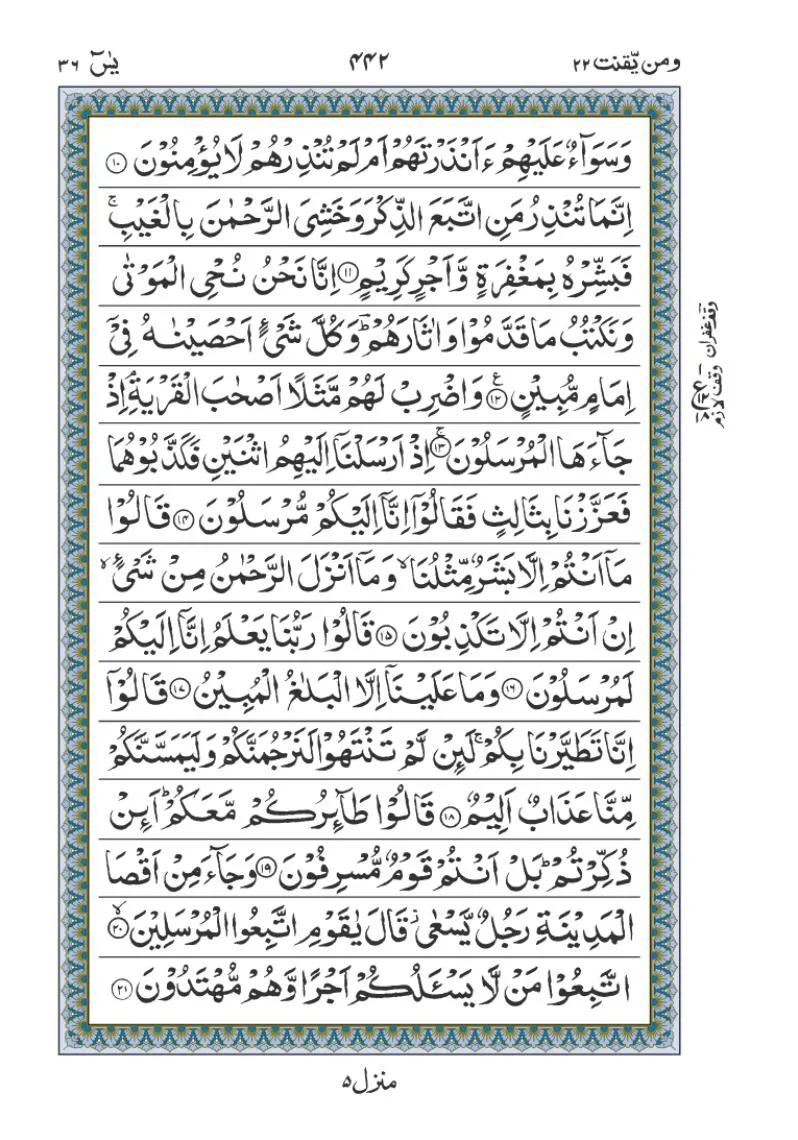 ومن یّقنت ۲۲
۴۴۲
یٰسٓ ۳۶
وَسَوَآءٌ عَلَيْهِمْ ءَاَنْذَرْتَهُمْ اَمْ لَمْ تُنْذِرْهُمْ لَا يُؤْمِنُوْنَ ۝۱۰
اِنَّمَا تُنْذِرُ مَنِ اتَّبَعَ الذِّكْرَ وَخَشِىَ الرَّحْمٰنَ بِالْغَيْبِ ۚ
فَبَشِّرْهُ بِمَغْفِرَةٍ وَّاَجْرٍ كَرِيْمٍ ۝۱۱ اِنَّا نَحْنُ نُحْىِ الْمَوْتٰى
وَنَكْتُبُ مَا قَدَّمُوْا وَاٰثَارَهُمْ ؕ وَكُلَّ شَىْءٍ اَحْصَيْنٰهُ فِىْۤ
اِمَامٍ مُّبِيْنٍ ۝۱۲ وَاضْرِبْ لَهُمْ مَّثَلًا اَصْحٰبَ الْقَرْيَةِ ۘ اِذْ
جَآءَهَا الْمُرْسَلُوْنَ ۝۱۳ۚ اِذْ اَرْسَلْنَاۤ اِلَيْهِمُ اثْنَيْنِ فَكَذَّبُوْهُمَا
فَعَزَّزْنَا بِثَالِثٍ فَقَالُوْۤا اِنَّاۤ اِلَيْكُمْ مُّرْسَلُوْنَ ۝۱۴ قَالُوْا
مَاۤ اَنْتُمْ اِلَّا بَشَرٌ مِّثْلُنَا ۙ وَمَاۤ اَنْزَلَ الرَّحْمٰنُ مِنْ شَىْءٍ ۙ
اِنْ اَنْتُمْ اِلَّا تَكْذِبُوْنَ ۝۱۵ قَالُوْا رَبُّنَا يَعْلَمُ اِنَّاۤ اِلَيْكُمْ
لَمُرْسَلُوْنَ ۝۱۶ وَمَا عَلَيْنَاۤ اِلَّا الْبَلٰغُ الْمُبِيْنُ ۝۱۷ قَالُوْۤا
اِنَّا تَطَيَّرْنَا بِكُمْ ۚ لَئِنْ لَّمْ تَنْتَهُوْا لَنَرْجُمَنَّكُمْ وَلَيَمَسَّنَّكُمْ
مِّنَّا عَذَابٌ اَلِيْمٌ ۝۱۸ قَالُوْا طَآئِرُكُمْ مَّعَكُمْ ؕ اَئِنْ
ذُكِّرْتُمْ ؕ بَلْ اَنْتُمْ قَوْمٌ مُّسْرِفُوْنَ ۝۱۹ وَجَآءَ مِنْ اَقْصَا
الْمَدِيْنَةِ رَجُلٌ يَّسْعٰى ؗ قَالَ يٰقَوْمِ اتَّبِعُوا الْمُرْسَلِيْنَ ۝۲۰ۙ
اتَّبِعُوْا مَنْ لَّا يَسْـَٔلُكُمْ اَجْرًا وَّهُمْ مُّهْتَدُوْنَ ۝۲۱
وقف غفران
وقف لازم
منزل ۵